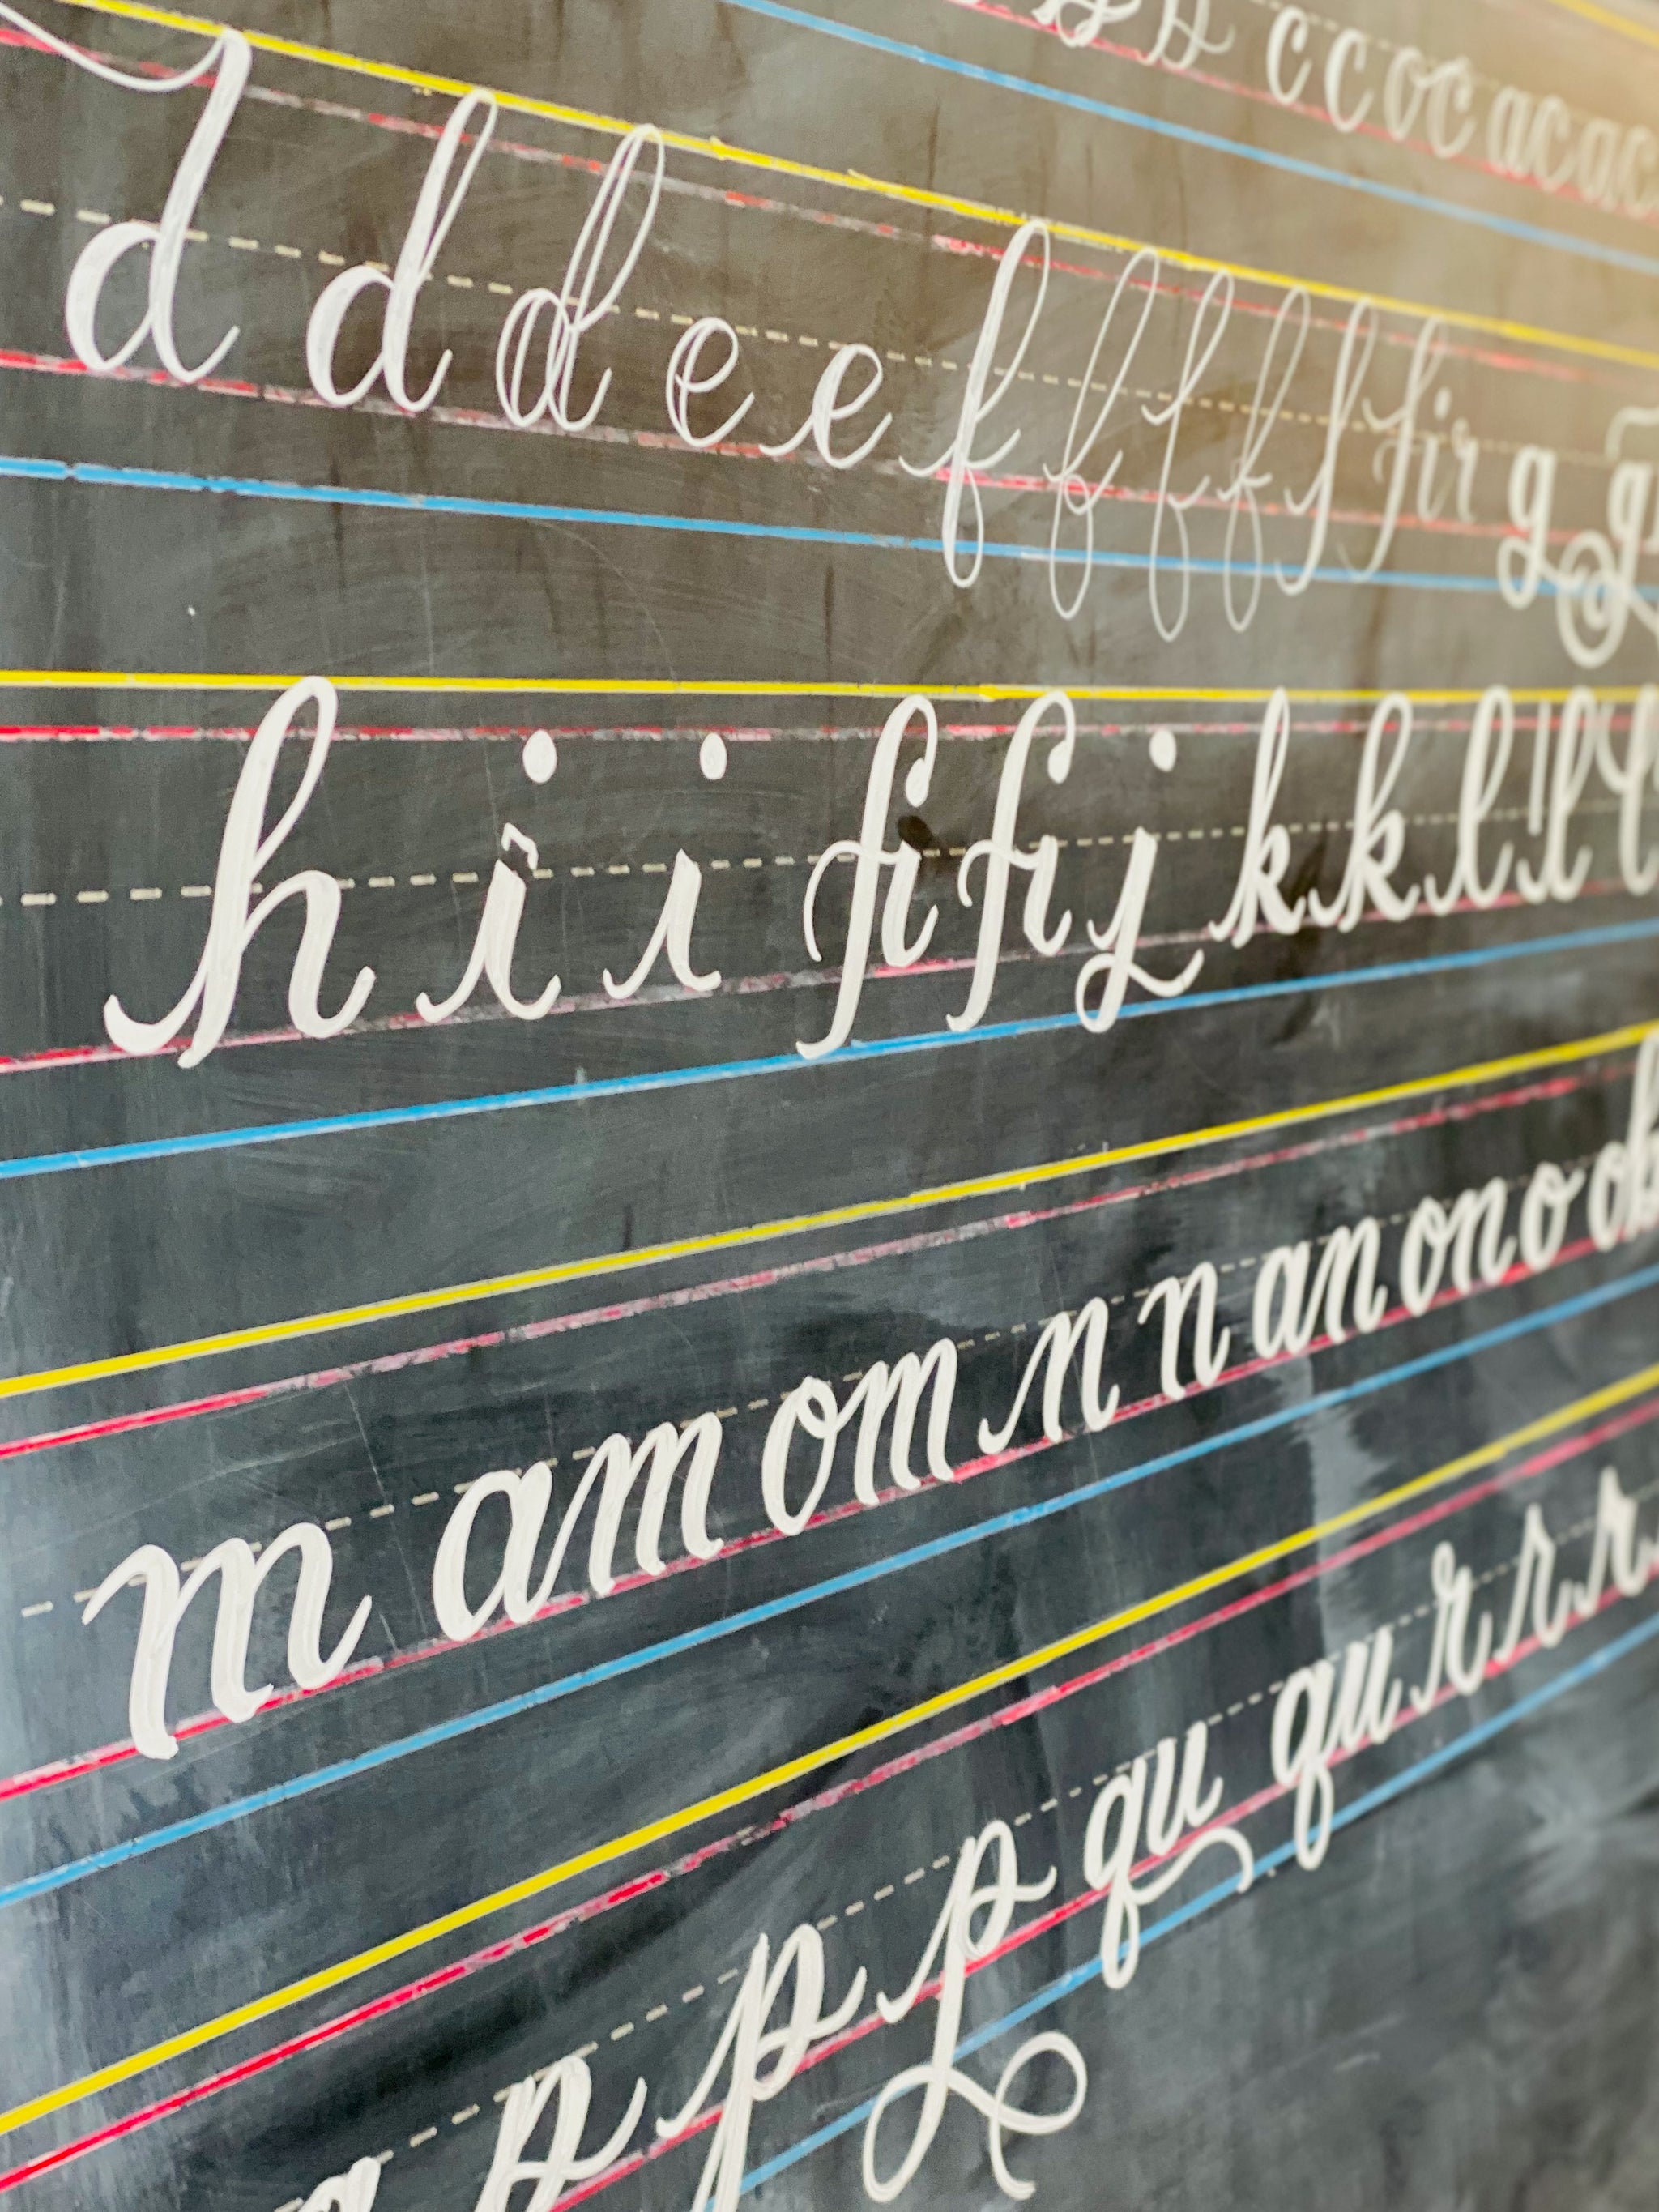 c c oc ac ac
d d d e e f f f f f fir g g
h i i fi fi j k k l l
m am om n n an on o
p p p qu qu r r r